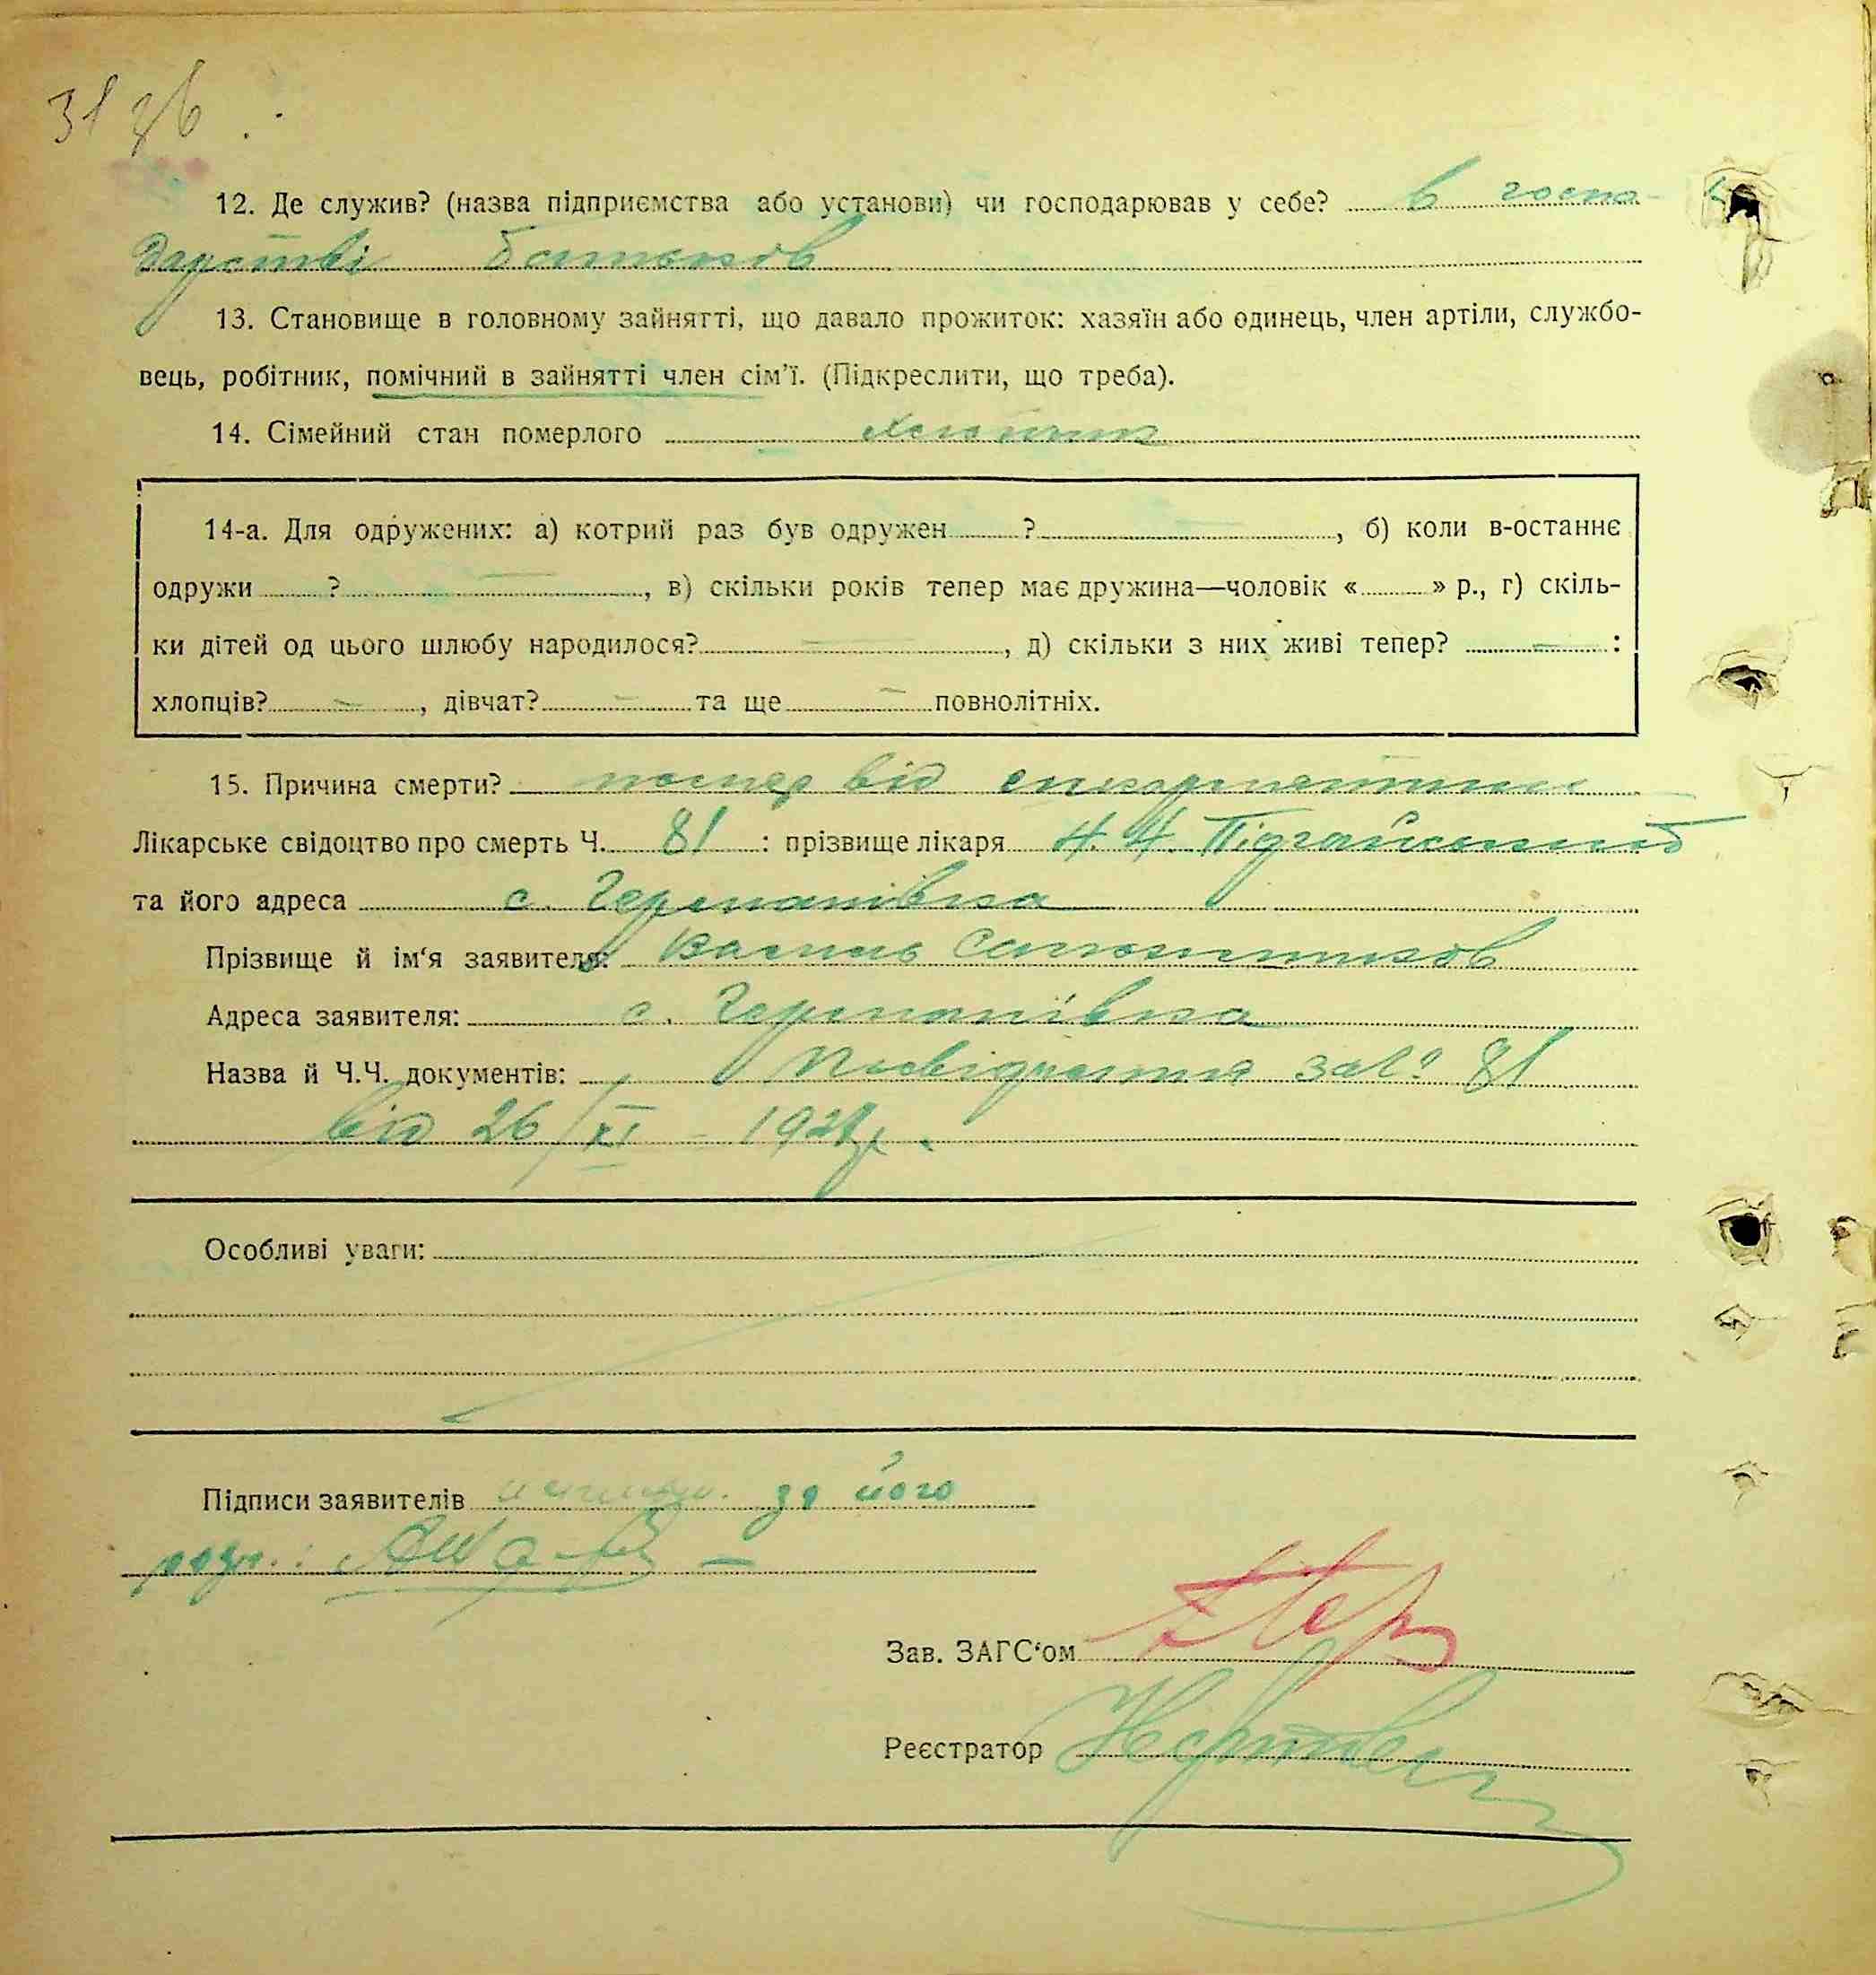 31 зв
12. Де служив? (назва підприємства або установи) чи господарював у себе? в госпо-
дарстві батьков
13. Становище в головному зайнятті, що давало прожиток: хазяїн або одинець, член артіли, службо-
вець, робітник, помічний в зайнятті член сім'ї. (Підкреслити, що треба).
14. Сімейний стан померлого
14-а. Для одружених: а) котрий раз був одружен ? , б) коли в-останнє
одружи ? , в) скільки років тепер має дружина—чоловік « » р., г) скіль-
ки дітей од цього шлюбу народилося? — , д) скільки з них живі тепер? — :
хлопців? — , дівчат? — та ще — повнолітніх.
15. Причина смерти? помер від
Лікарське свідоцтво про смерть Ч. 81 : прізвище лікаря
та його адреса с.
Прізвище й ім'я заявителя: Василь
Адреса заявителя: с.
Назва й Ч.Ч. документів: Посвідчення за № 81
від 26/XI – 192
Особливі уваги:
Підписи заявителів за його
Зав. ЗАГС'ом
Реєстратор